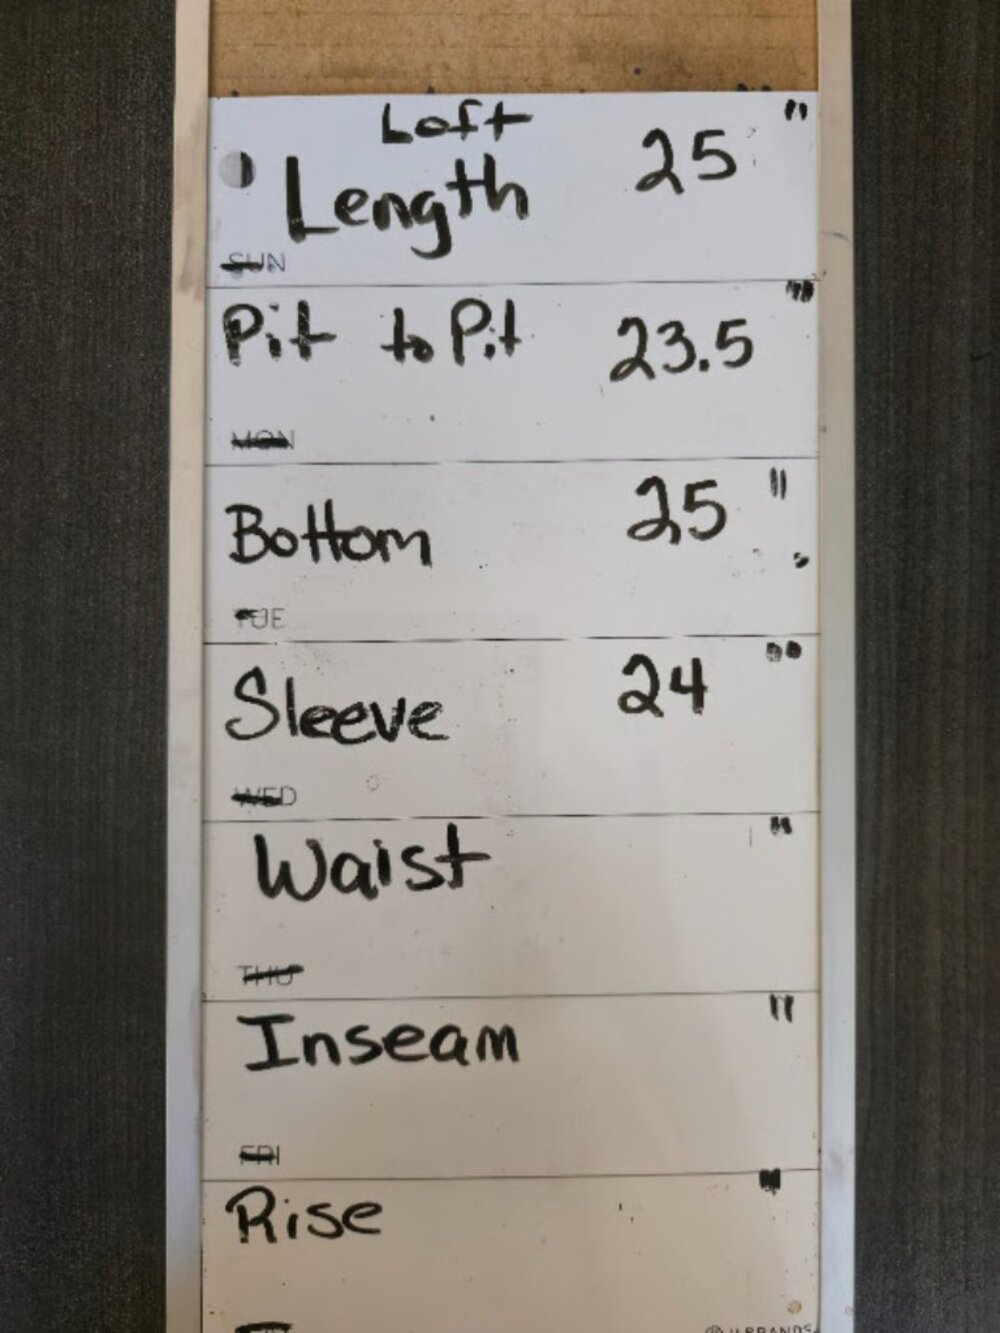 Loft
Length 25 "
SUN
Pit to Pit 23.5 "
MON
Bottom 25 "
TUE
Sleeve 24 "
WED
Waist "
THU
Inseam "
FRI
Rise "
U BRANDS